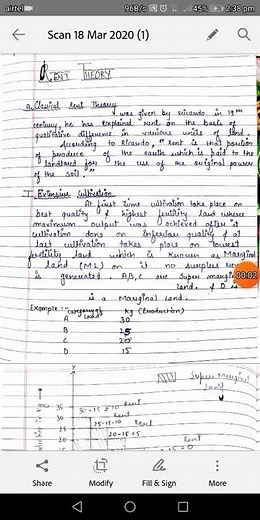 airtel 96B/s 45% 2:38 pm
Scan 18 Mar 2020 (1)
RENT THEORY
a. Clasical Rent Theory
was given by Ricardo in 19th
century, he has explained rent on the basis of
qualitative difference in various units of land.
According to Ricardo, "Rent is that portion
of produce of the earth which is paid to the
landlord for the use of the original power
of the soil."
I. Extensive Cultivation
At first time cultivation take place on
best quality & highest fertility land where
maximum output was achieved after
cultivation done on inferior quality & at
last cultivation takes place on lowest
fertility land which is known as Marginal
land (ML) on it no surplus
is generated. A,B,C are super
00:02
land. & D
is a Marginal land.
Example:- Category of land Kg (Production)
A 30
B 25
C 20
D 15
Super Marginal
Land
35
30 30-15=15 Rent
25 25-15=10 Rent
20 20-15=5 Rent
15-15=0
Share Modify Fill & Sign More